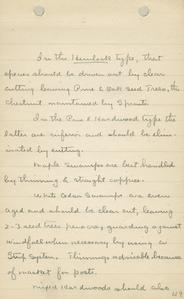 In the Hemlock type, that
species should be driven out by clear
cutting leaving Pine & Oak Seed Trees, the
chestnut maintained by Sprouts.
In the Pine & Hardwood type the
latter are inferior and should be elim-
inated by cutting.
Maple Swamps are best handled
by thinning & straight coppice.
White Cedar Swamps are even
aged and should be clear cut, leaving
2-3 seed trees per acre, guarding against
windfall when necessary by using a
Strip System. Thinnings advisable because
of market for posts.
Mixed Hardwoods should also